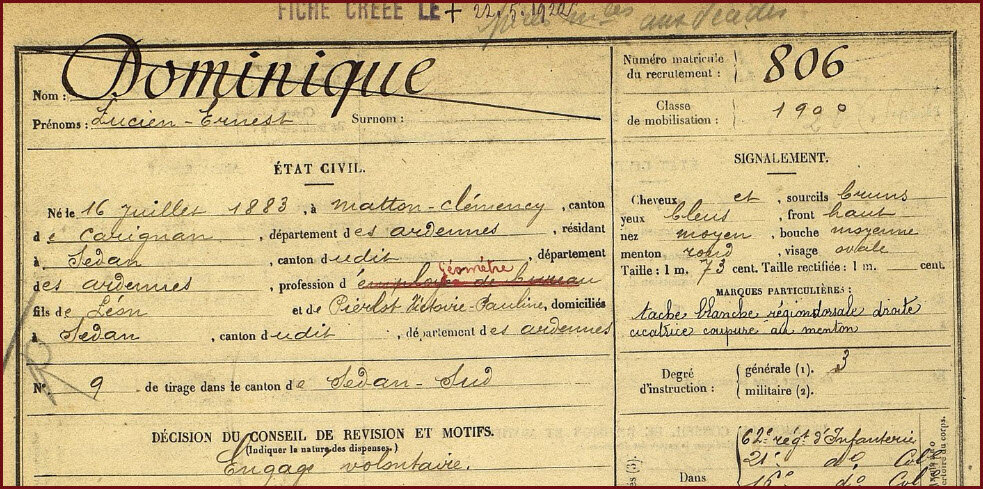 FICHE CRÉÉE LE + 22.5.1920
Dominique
Nom :
Prénoms : Lucien-Ernest Surnom :
ÉTAT CIVIL.
Né le 16 Juillet 1883, à Matton-Clémency, canton
de Carignan, département des Ardennes, résidant
à Sedan, canton dudit, département
Géomètre
des Ardennes, profession d'employé de bureau
fils de Léon et de Pierlot Victoire-Pauline, domiciliés
à Sedan, canton dudit, département des Ardennes
N° 9 de tirage dans le canton de Sedan-Sud
DÉCISION DU CONSEIL DE REVISION ET MOTIFS.
(Indiquer la nature des dispenses.)
Engagé volontaire.
Numéro matricule
du recrutement : 806
Classe
de mobilisation : 190
SIGNALEMENT.
Cheveux et, sourcils bruns
yeux bleus, front haut
nez moyen, bouche moyenne
menton rond, visage ovale
Taille : 1 m. 73 cent. Taille rectifiée : 1 m. cent.
MARQUES PARTICULIÈRES :
tache blanche région dorsale droite
cicatrice coupure au menton
Degré
d'instruction :
générale (1). 3
militaire (2).
62e régt d'Infanterie
21e do Cole
Dans